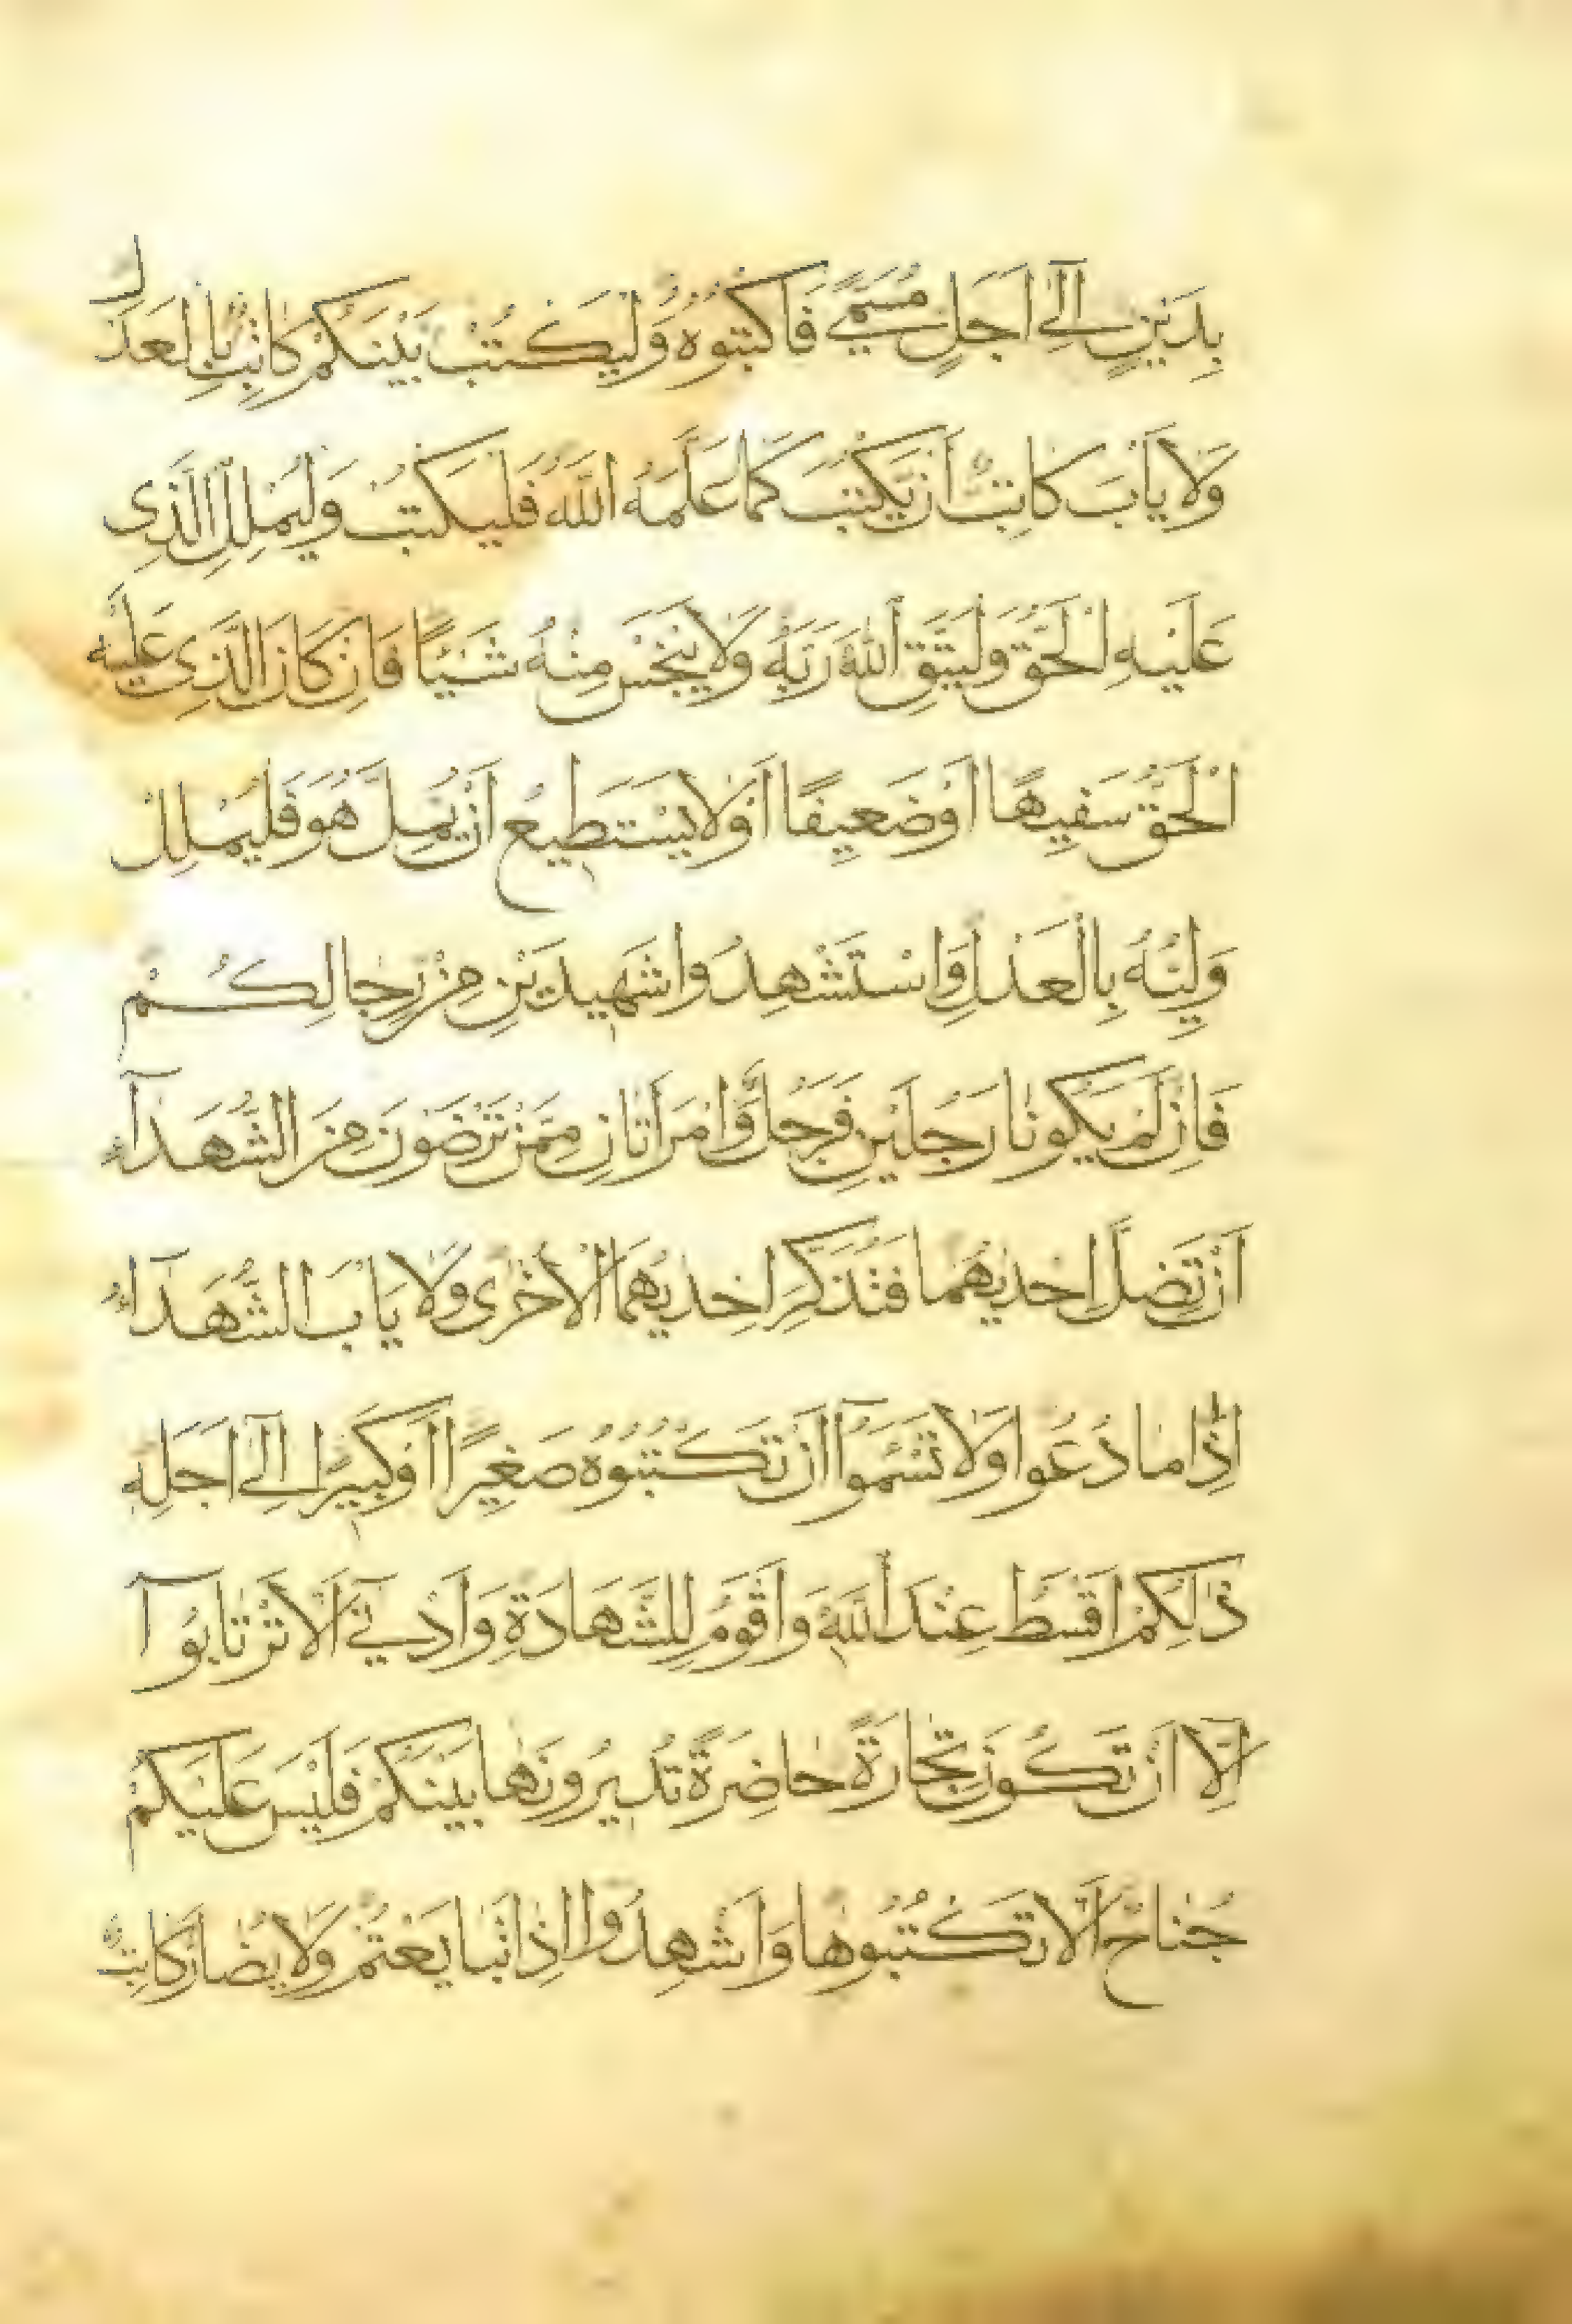 بِدَيْنٍ اِلٰٓى اَجَلٍ مُسَمًّى فَاكْتُبُوهُ وَلْيَكْتُبْ بَيْنَكُمْ كَاتِبٌ بِالْعَدْلِ
وَلَا يَأْبَ كَاتِبٌ اَنْ يَكْتُبَ كَمَا عَلَّمَهُ اللّٰهُ فَلْيَكْتُبْ وَلْيُمْلِلِ الَّذِى
عَلَيْهِ الْحَقُّ وَلْيَتَّقِ اللّٰهَ رَبَّهُ وَلَا يَبْخَسْ مِنْهُ شَيْئًا فَاِنْ كَانَ الَّذِى عَلَيْهِ
الْحَقُّ سَفِيهًا اَوْ ضَعِيفًا اَوْ لَا يَسْتَطِيعُ اَنْ يُمِلَّ هُوَ فَلْيُمْلِلْ
وَلِيُّهُ بِالْعَدْلِ وَاسْتَشْهِدُوا شَهِيدَيْنِ مِنْ رِجَالِكُمْ
فَاِنْ لَمْ يَكُونَا رَجُلَيْنِ فَرَجُلٌ وَامْرَاَتَانِ مِمَّنْ تَرْضَوْنَ مِنَ الشُّهَدَآءِ
اَنْ تَضِلَّ اِحْدٰيهُمَا فَتُذَكِّرَ اِحْدٰيهُمَا الْاُخْرٰى وَلَا يَأْبَ الشُّهَدَآءُ
اِذَا مَا دُعُوا وَلَا تَسْـَٔمُوٓا اَنْ تَكْتُبُوهُ صَغِيرًا اَوْ كَبِيرًا اِلٰٓى اَجَلِهِ
ذٰلِكُمْ اَقْسَطُ عِنْدَ اللّٰهِ وَاَقْوَمُ لِلشَّهَادَةِ وَاَدْنٰٓى اَلَّا تَرْتَابُوٓا
اِلَّآ اَنْ تَكُونَ تِجَارَةً حَاضِرَةً تُدِيرُونَهَا بَيْنَكُمْ فَلَيْسَ عَلَيْكُمْ
جُنَاحٌ اَلَّا تَكْتُبُوهَا وَاَشْهِدُوٓا اِذَا تَبَايَعْتُمْ وَلَا يُضَارَّ كَاتِبٌ